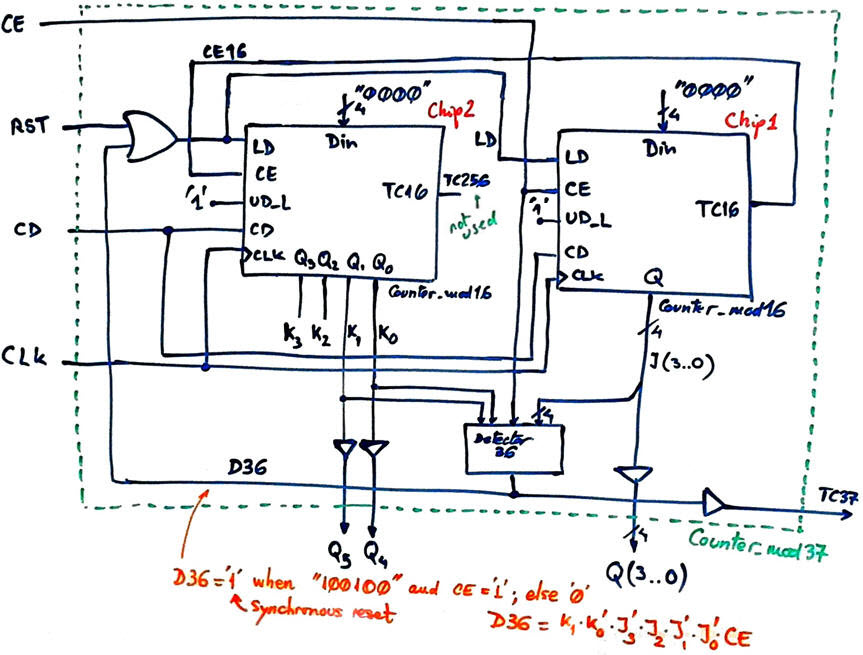 CE
CE16
"0000"
4
Chip2
"0000"
4
Chip1
RST
LD
Din
LD
LD
Din
CE
TC16
TC256
CE
TC16
'1'
UD_L
not used
'1'
UD_L
CD
CD
CD
CLK
Q3 Q2 Q1 Q0
CLK
Q
Counter_mod16
Counter_mod16
K3 K2 K1 K0
4
CLK
J(3..0)
4
Detector
36
D36
TC37
4
Counter_mod37
Q5 Q4
Q(3..0)
D36='1' when "100100" and CE='1'; else '0'
synchronous reset
D36 = K1·K0'·J3'·J2·J1'·J0'·CE